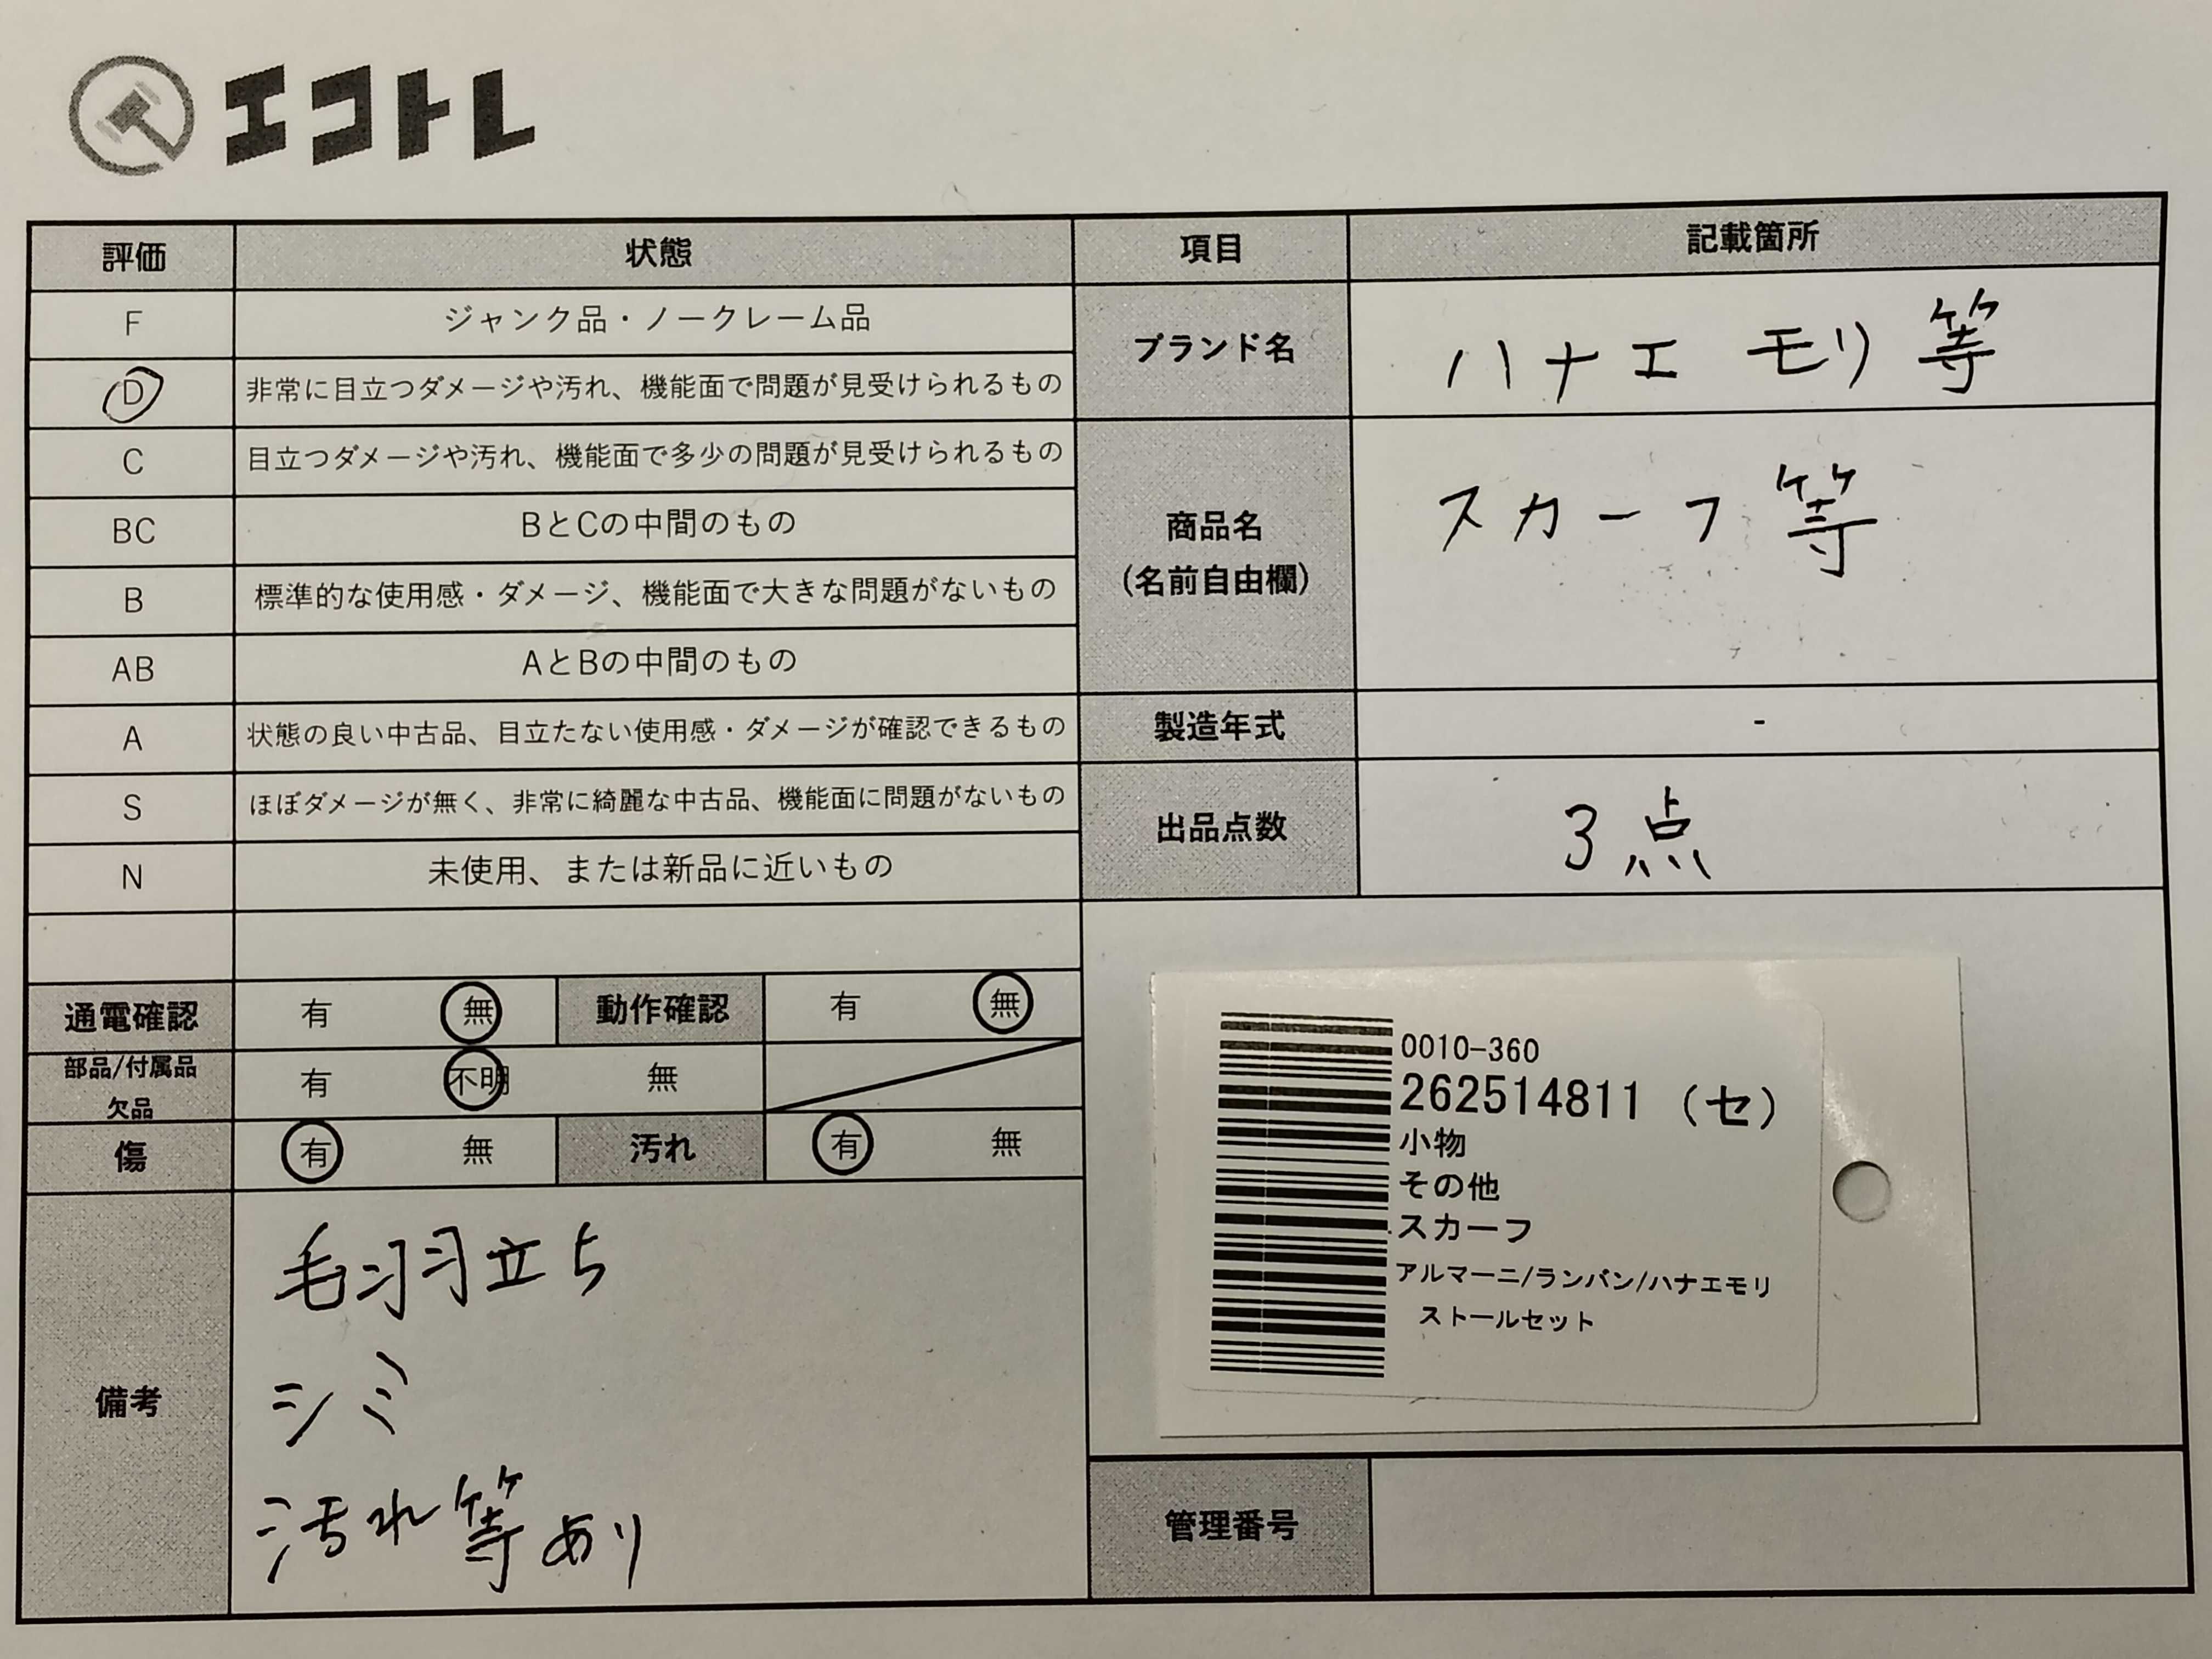 エコトレ
評価 状態 項目 記載箇所
F ジャンク品・ノークレーム品
D 非常に目立つダメージや汚れ、機能面で問題が見受けられるもの
ブランド名 ハナエ モリ 等
C 目立つダメージや汚れ、機能面で多少の問題が見受けられるもの
BC BとCの中間のもの
商品名
(名前自由欄)
スカーフ等
B 標準的な使用感・ダメージ、機能面で大きな問題がないもの
AB AとBの中間のもの
A 状態の良い中古品、目立たない使用感・ダメージが確認できるもの
製造年式 -
S ほぼダメージが無く、非常に綺麗な中古品、機能面に問題がないもの
出品点数 3点
N 未使用、または新品に近いもの
通電確認 有 無 動作確認 有 無
部品/付属品
欠品
有 不明 無
傷 有 無 汚れ 有 無
備考
毛羽立ち
シミ
汚れ等あり
0010-360
262514811 (セ)
小物
その他
スカーフ
アルマーニ/ランバン/ハナエモリ
ストールセット
管理番号